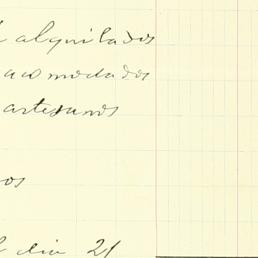 alquilados
acomodados
artesanos
os
dia 21